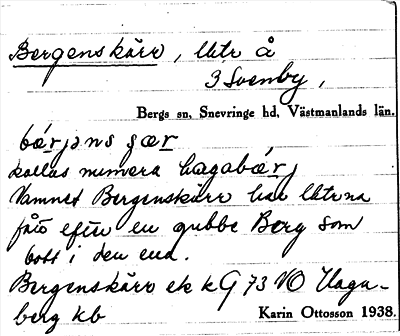 Bergenskärr, lktr å
3 Svenby,
Bergs sn, Snevringe hd, Västmanlands län.
bærjəns ɕær
kallas numera hagabærj
Namnet Bergenskärr har lktrna
fått efter en gubbe Berg som
bott i den ena.
Bergenskärr ek kG 73 NO Haga-
berg kb
Karin Ottosson 1938.